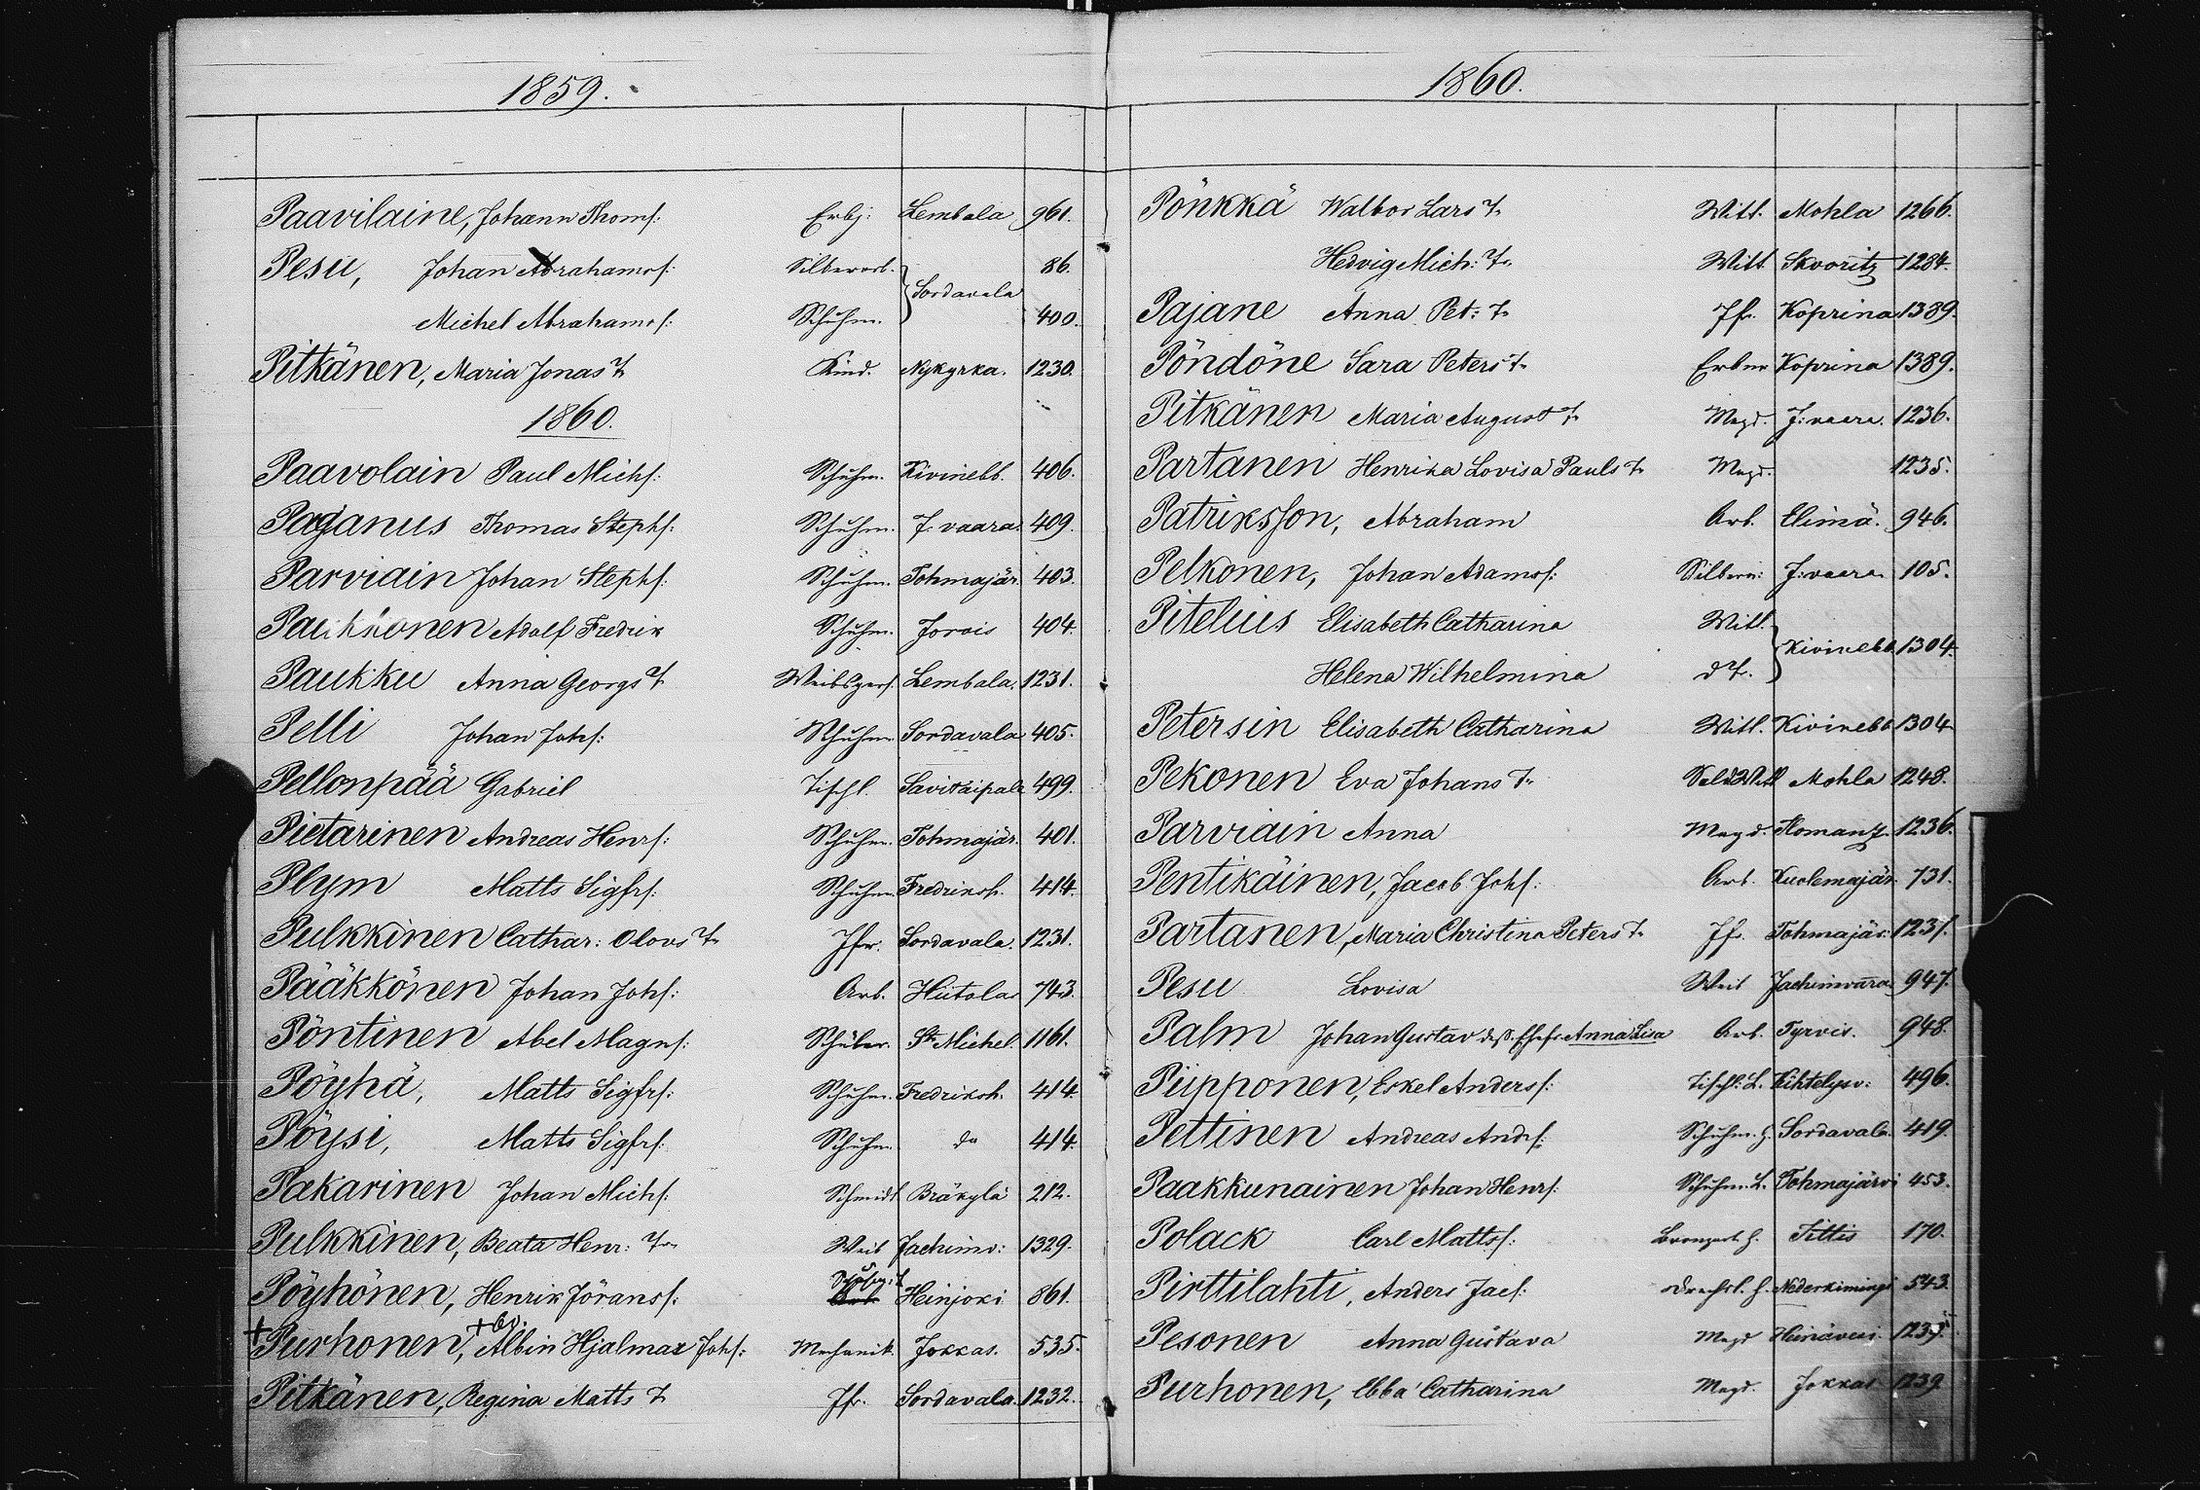 1859.
Paavilaine, Johann Thoms: Erbj: Lembala 961.
Pesu, Johan Abrahams: Silberarb. Sordavala 86.
Michel Abrahams: Schuhm. 400.
Pitkänen, Maria Jonas T. Kind. Nykyrka. 1230.
1860.
Paavolain Paul Michs: Schuhm. Kivinebb. 406.
Paganus Thomas Stephs: Schuhm. J: vaara. 409.
Parviain Johan Stephs: Schuhm. Tohmajär. 403.
Paukkonen Adolf Fredrik Schuhm. Jorois 404.
Paukku Anna Georgs T. Weibspers. Lembala. 1231.
Pelli Johan Johs: Schuhm. Sordavala 405.
Pellonpää Gabriel Tischl. Savitaipale 499.
Pietarinen Andreas Henrs: Schuhm. Tohmajär. 401.
Plym Matts Sigfrs: Schuhm. Fredriksh. 414.
Pulkkinen Cathar: Olovs T. Jfr. Sordavala. 1231.
Pääkkönen Johan Johs: Arb. Hiitola 743.
Pöntinen Abel Magns: Schüler. St. Michel. 1161.
Pöyhä, Matts Sigfrs: Schuhm. Fredriksh. 414.
Pöysi, Matts Sigfrs: Schuhm. do 414.
Pakarinen Johan Michs: Schmidt Bräkylä 212.
Pulkkinen, Beata Henr: T. Weib Jachimv: 1329.
Pöyhönen, Henrik Jörans: Heinjoki 861.
+ Purhonen, Albin Hjalmar Johs: Mechanik. Jokkas. 535.
Pitkänen, Regina Matts T. Jfr. Sordavala. 1232.
1860.
Pönkkä Walbor Lars T. Witt. Mohla 1266.
Hedvig Mich: T. Witt. Skvoritz 1284.
Pajane Anna Pet: T. Jfr. Koprina 1389.
Pöndöne Sara Peters T. Erbnr Koprina 1389.
Pitkänen Maria August T. Magd. J: vaara. 1236.
Partanen Henrika Lovisa Pauls T. Magd. 1235.
Patriksson, Abraham Arb. Elimä. 946.
Pelkonen, Johan Adams: Silberar: J: vaara 105.
Pitelius Elisabeth Catharina Witt. Kivinebb. 1304.
Helena Wilhelmina d T.
Petersin Elisabeth Catharina Witt. Kivinebb 1304
Pekonen Eva Johans T. Sold Witt Mohla 1248.
Parviain Anna Magd. Ilomantz. 1236.
Pentikäinen, Jacob Johs: Arb. Kuolemajär. 731.
Partanen, Maria Christina Peters T. Jfr. Tohmajär: 1231.
Pesu Lovisa Weib Jachimvara 947.
Palm Johan Gustav Anna Lisa Arb. Tyrvis. 948.
Piipponen, Eskel Anderss: Tischl: L. Kihtelysv: 496.
Pettinen Andreas Ands: Schuhm. G. Sordavala. 419.
Paakkunainen Johan Henrs: Schuhm. L. Tohmajärvi 453.
Polack Carl Matts: Bronzarb. G. Tittis 170.
Pirttilahti, Anders Jacs: Drechsl. G. Nederkimingi 543.
Pesonen Anna Gustava Magd Heinävesi. 1235.
Purhonen, Ebba Catharina Magd. Jokkas 1239